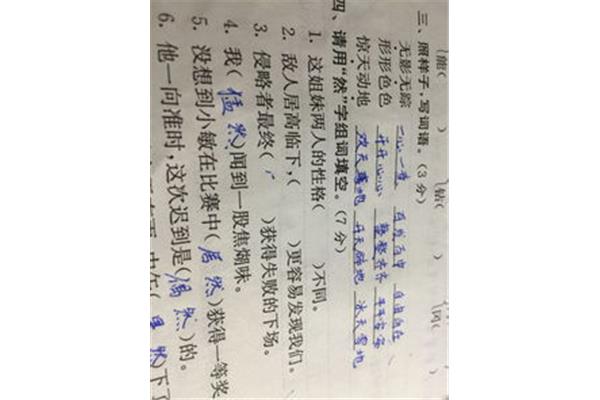 能( ) 钻( )
三、照样子,写词语。(3 分)
无影无踪 一心一意 百发百中 自由自在
形形色色 开开心心 整整齐齐 平平安安
惊天动地 欢天喜地 开天辟地 冰天雪地
四、请用“然”字组词填空。(7 分)
1. 这姐妹两人的性格( )不同。
2. 敌人居高临下,( )更容易发现我们。
3. 侵略者最终( )获得失败的下场。
4. 我(猛然)闻到一股焦煳味。
5. 没想到小敏在比赛中(居然)获得一等奖
6. 他一向准时,这次迟到是(偶然)的。
然)下了